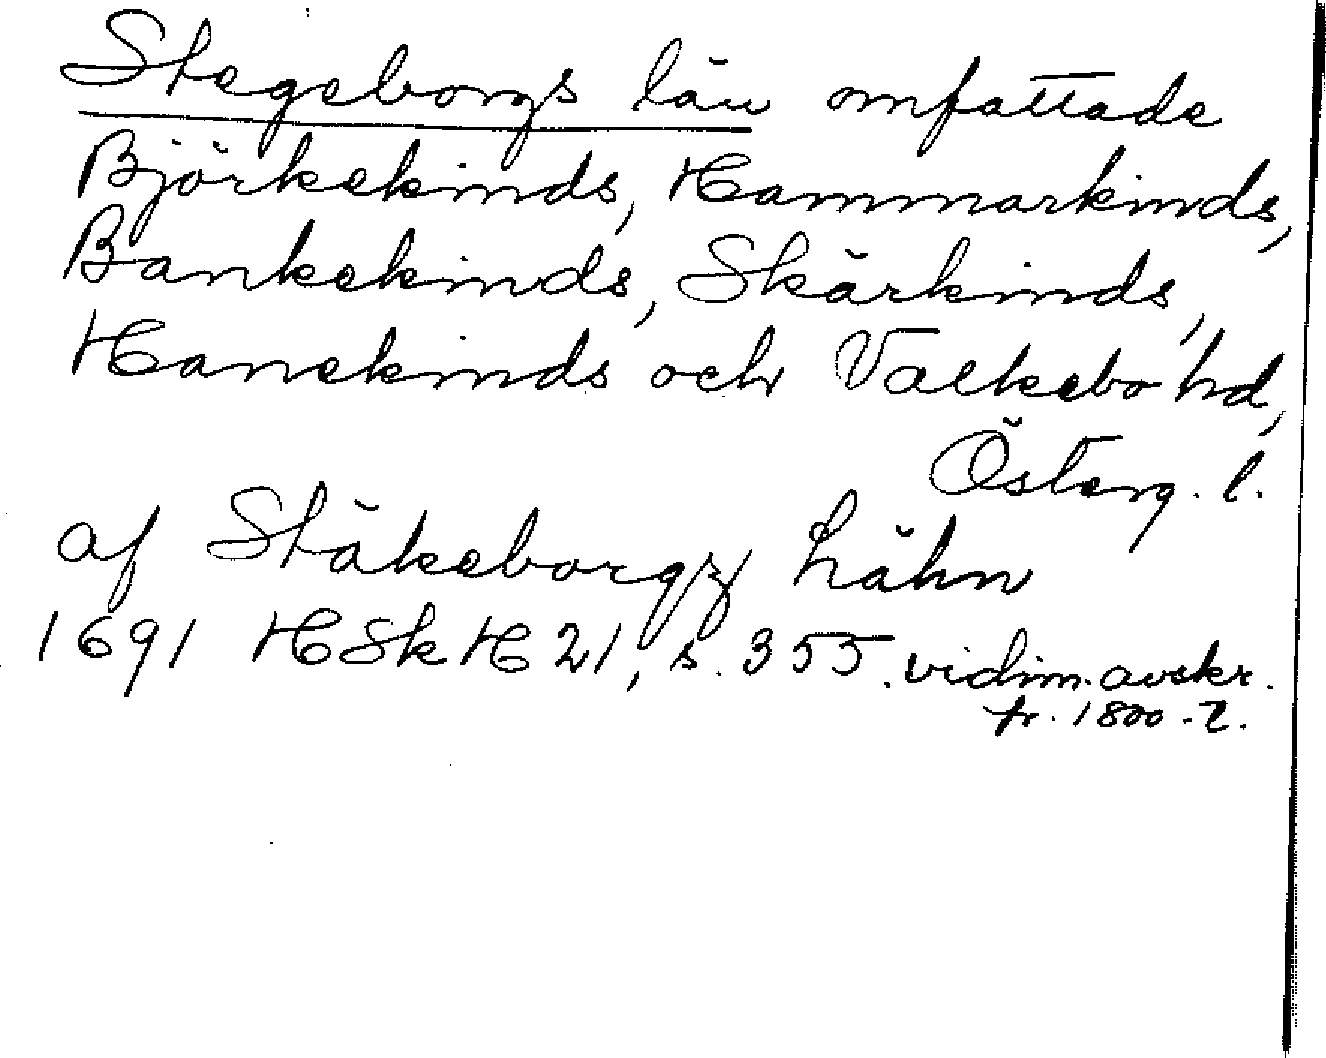 Stegeborgs län omfattade
Björkekinds, Hammarkinds,
Bankekinds, Skärkinds,
Hanekinds och Valkebo hd,
Österg. l.
af Stäkeborgz Lähn
1691 HSk H 21, s. 355. vidim. avskr.
fr. 1800-t.